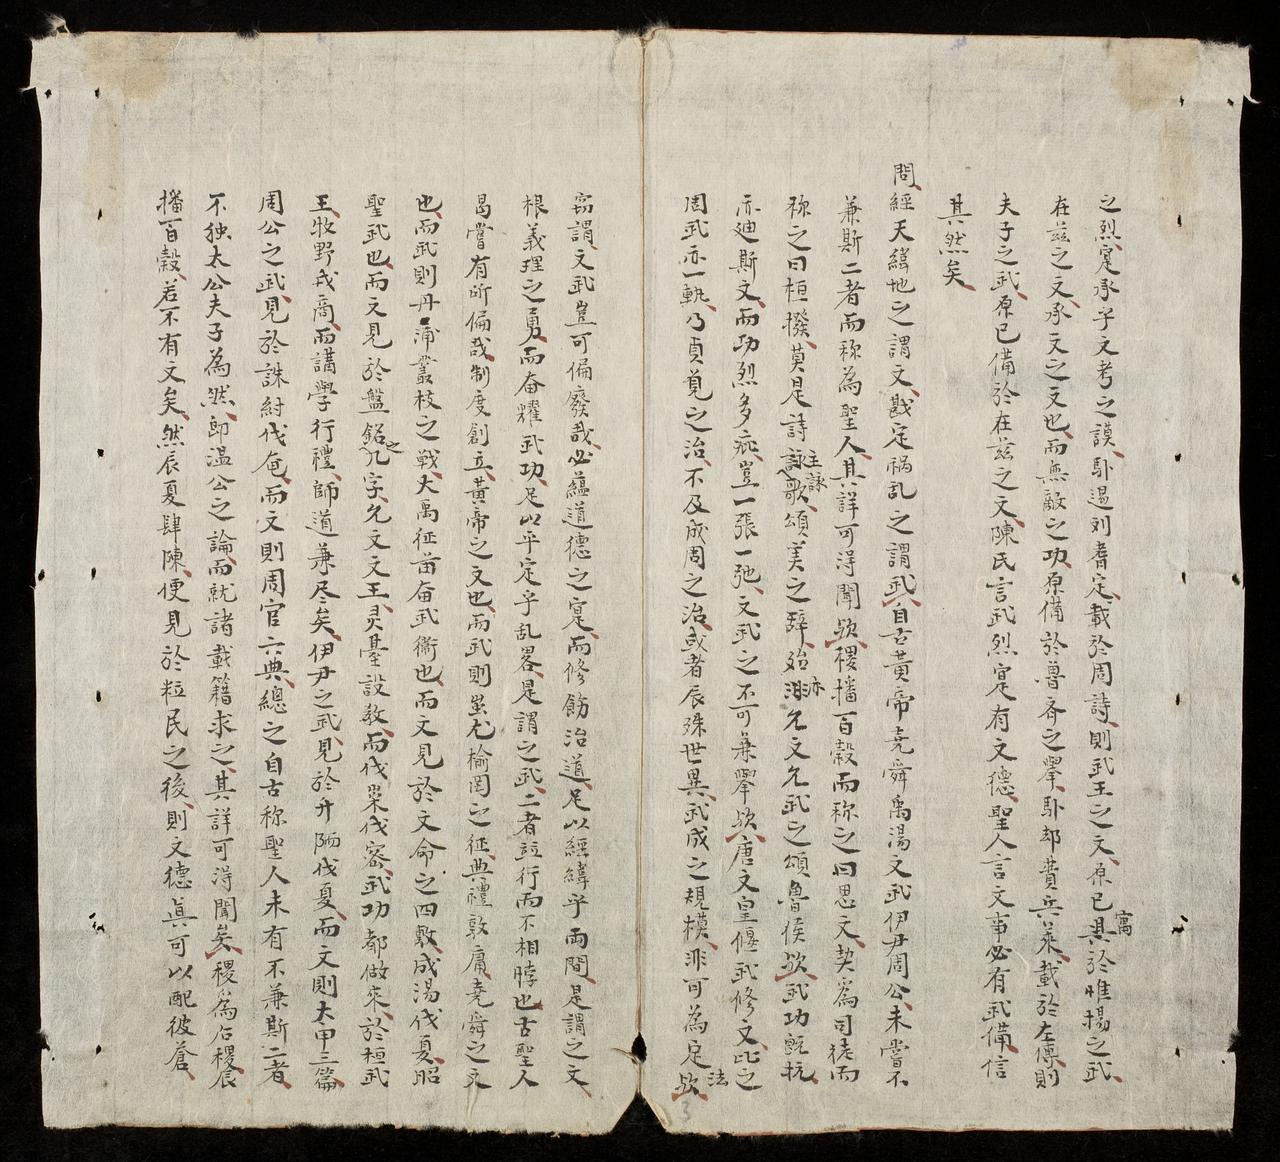 之烈寔承乎文考之謨卧遏刘耆定載於周詩則武王之文原已具於惟揚之武
寓
在茲之文承文之文也而無敵之功原備於魯斉之舉卧却費兵萊載於左傳則
夫子之武原已備於在茲之文陳氏言武烈寔有文德聖人言文事必有武備信
其然矣
問經天緯地之謂文戡定禍乱之謂武自古黃帝尭舜禹湯文武伊尹周公未嘗不
兼斯二者而称為聖人其詳可淂聞欤稷播百穀而称之曰思文契爲司徒而
称之曰桓撥莫是詩詠歌頌美之辞殆非允文允武之頌魯侯欤武功既抗
主詠
亦
亦迪斯文而功烈多疵豈一張一弛文武之不可兼舉欤唐文皇偃武修文比之
周武亦一軌乃貞覓之治不及成周之治或者辰殊世異武成之規模非可為定欤
法
窃謂文武豈可偏廢哉必蘊道德之寔而修飭治道足以經緯乎両間是謂之文
根義理之勇而奋耀武功足以平定乎乱畧是謂之武二者竝行而不相悖也古聖人
曷嘗有所偏哉制度創立黃帝之文也而武則蚩尤榆罔之征典禮敦庸尭舜之文
也而武則丹浦叢枝之戰大禹征苗奋武衛也而文見於文命之四敷成湯伐夏昭
聖武也而文見於盤銘之九字允文文王灵臺設教而伐崇伐密武功都做來於桓武
王牧野戎商而講學行禮師道兼尽矣伊尹之武見於升陑伐夏而文則太甲三篇
周公之武見於誅紂伐奄而文則周官六典總之自古称聖人未有不兼斯二者
不独太公夫子為然即温公之論而就諸載籍求之其詳可淂聞矣稷爲后稷辰
播百穀若不有文矣然辰夏肆陳便見於粒民之後則文德眞可以配彼蒼